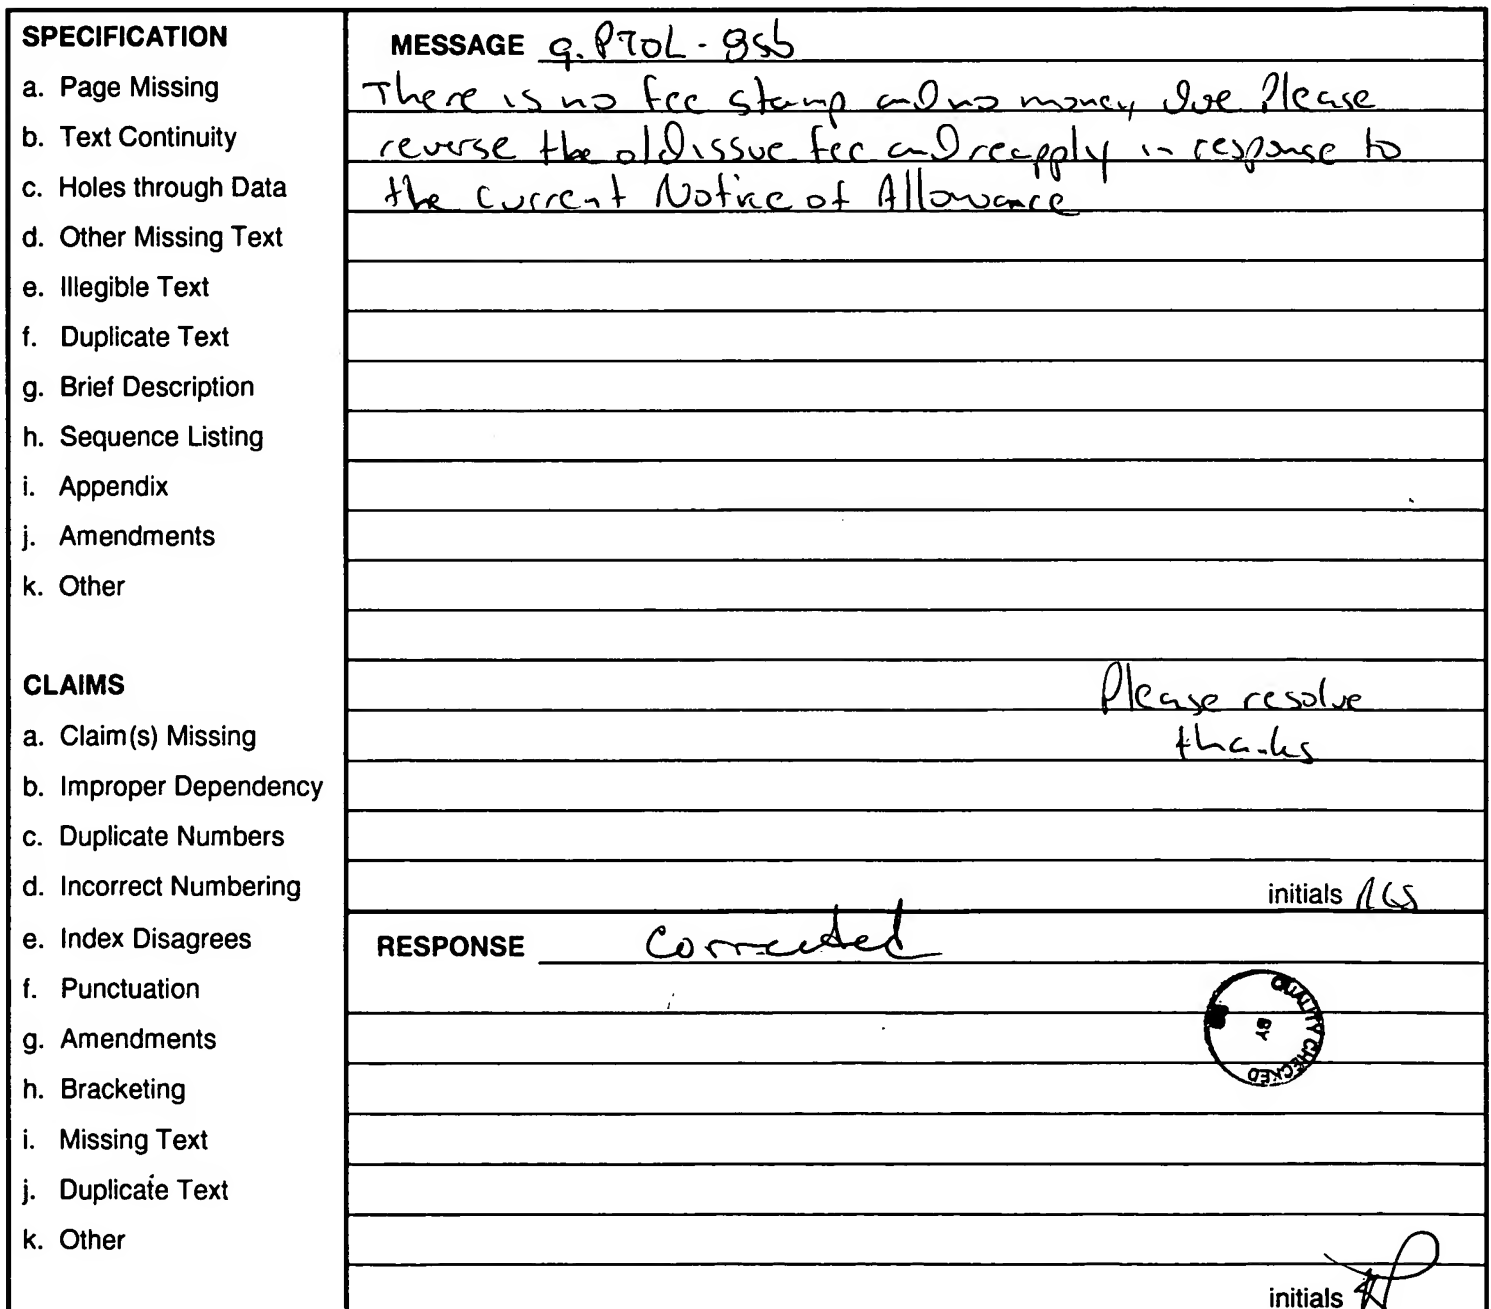 SPECIFICATION
a. Page Missing
b. Text Continuity
c. Holes through Data
d. Other Missing Text
e. Illegible Text
f. Duplicate Text
g. Brief Description
h. Sequence Listing
i. Appendix
j. Amendments
k. Other
CLAIMS
a. Claim(s) Missing
b. Improper Dependency
c. Duplicate Numbers
d. Incorrect Numbering
e. Index Disagrees
f. Punctuation
g. Amendments
h. Bracketing
i. Missing Text
j. Duplicate Text
k. Other
MESSAGE q. PTOL-85b
There is no fee stamp and no money due Please
reverse the old issue fee and reapply in response to
the current Notice of Allowance
Please resolve
thanks
initials
RESPONSE Corrected
QUALITY CHECKED
BY
initials